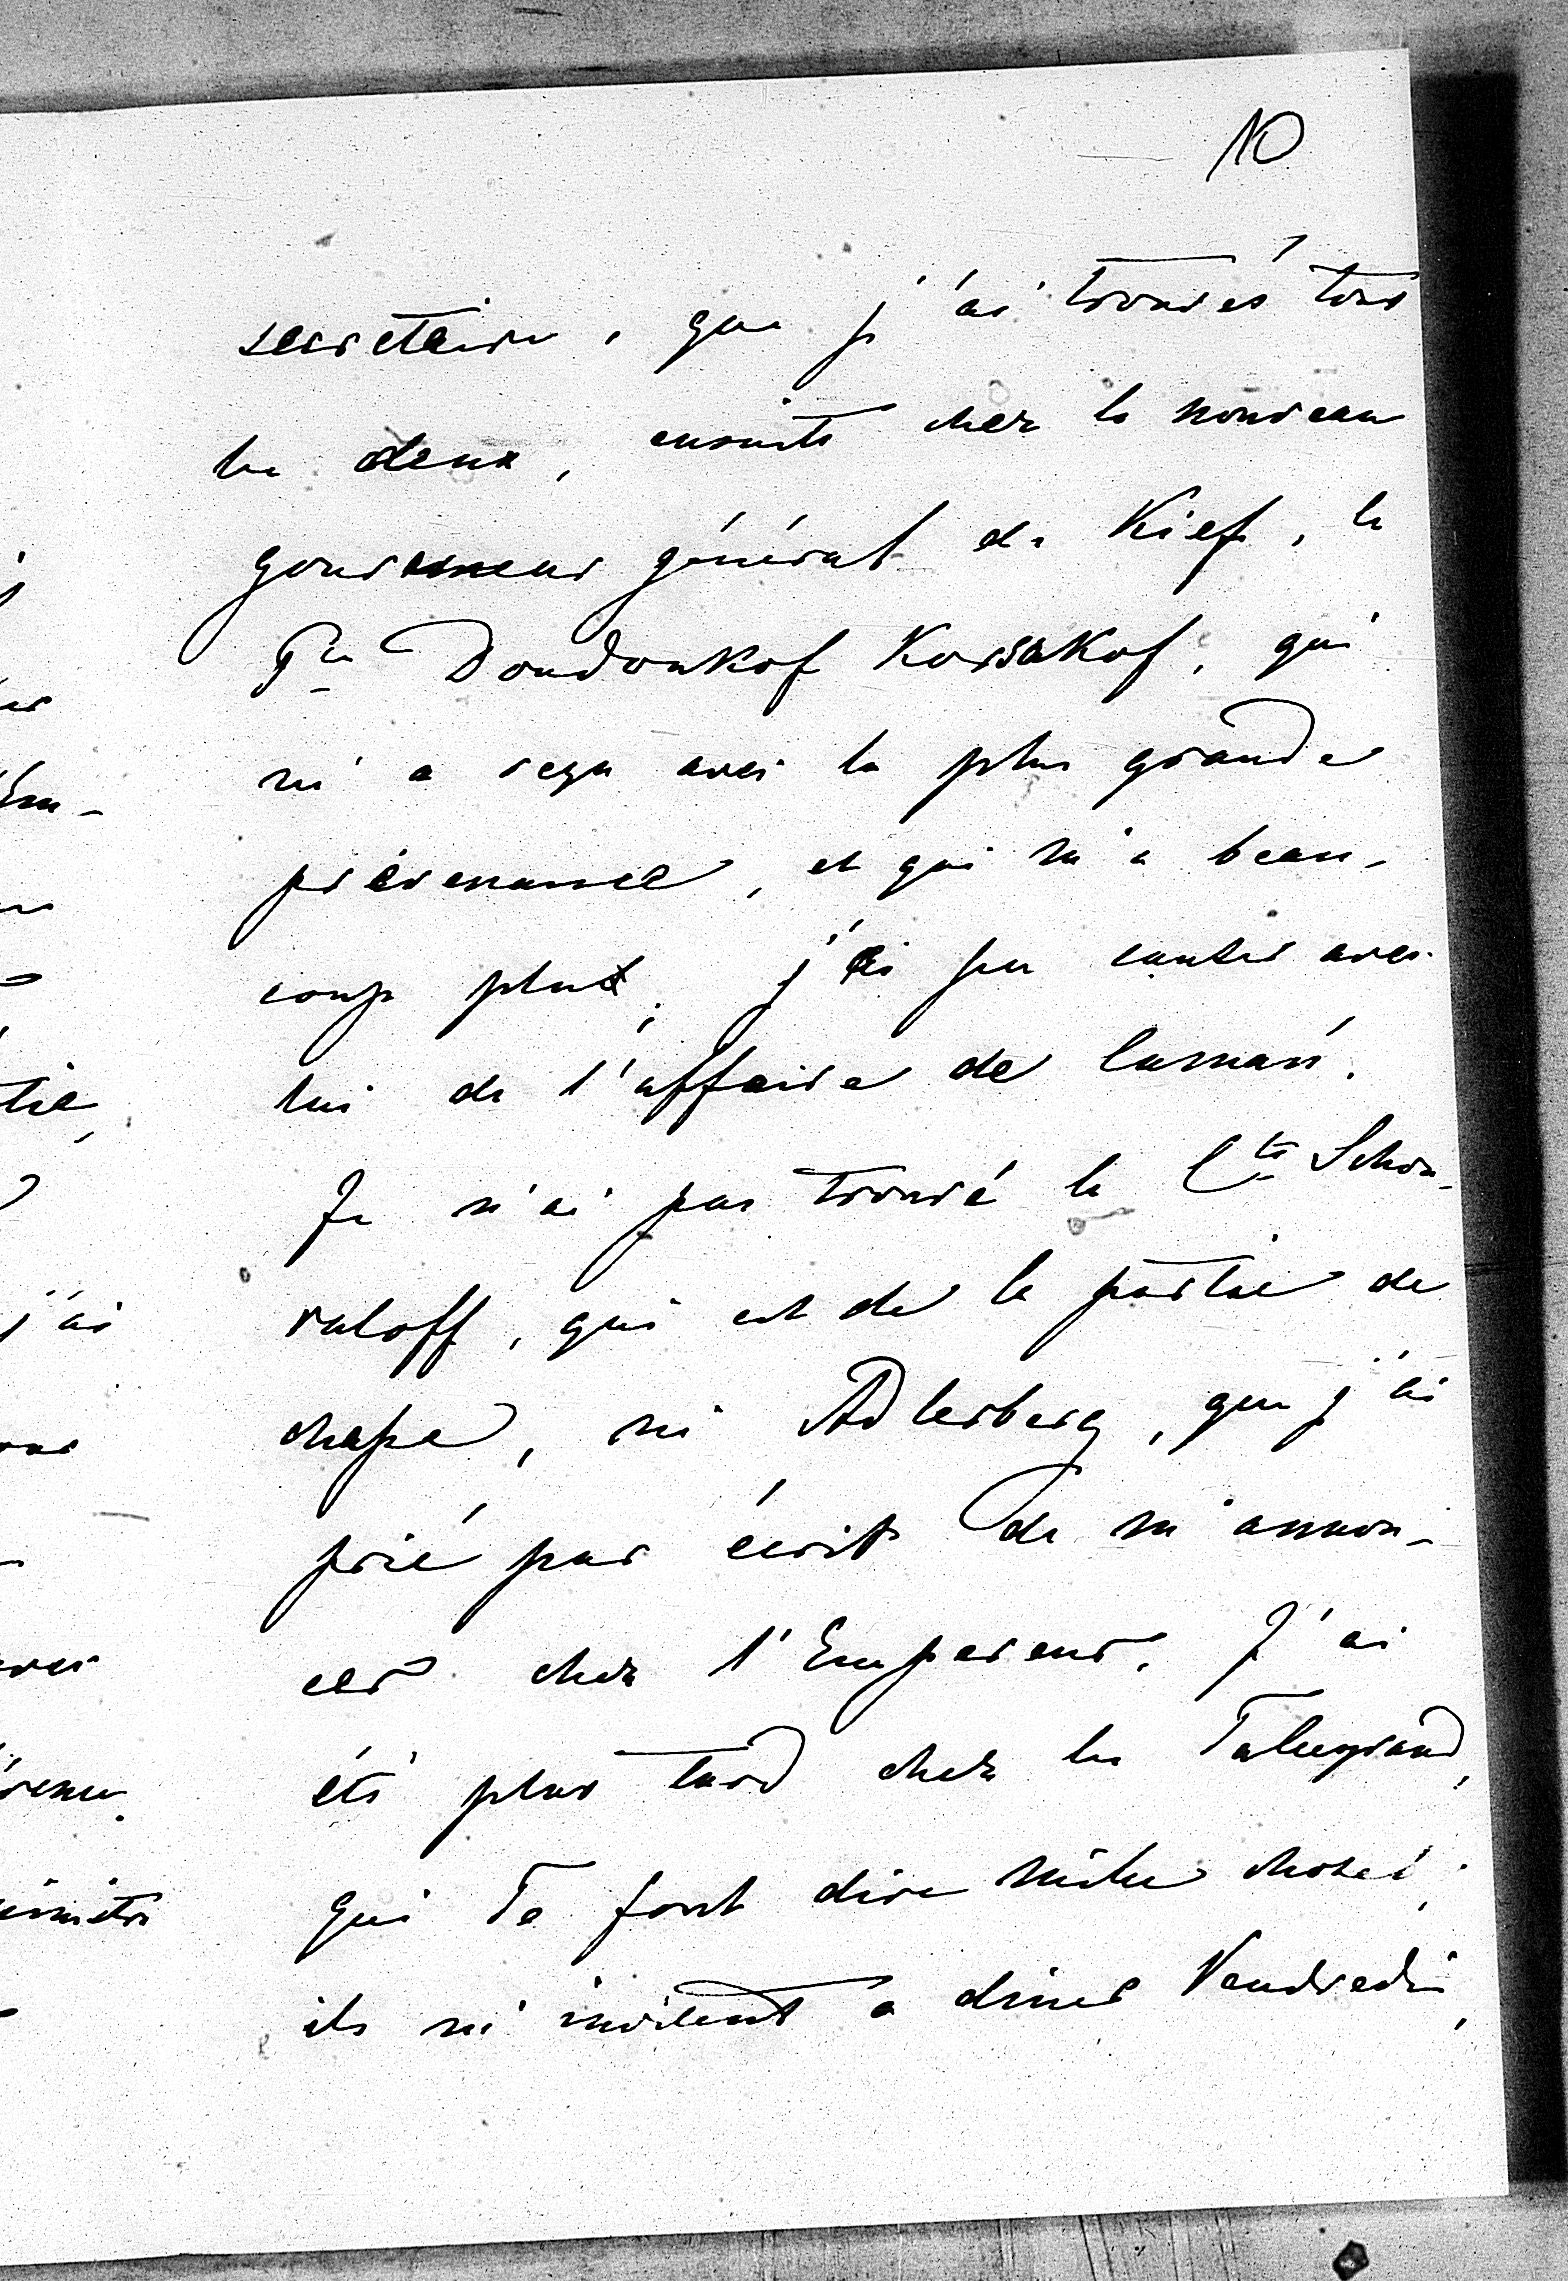 10
secretaire, que j'ai trouvés tous
les deux, ensuite chez le nouveau
gouverneur général de Kief, le
Pce Doudoukof Korsakof, qui
m'a reçu avec la plus grande
prévenance, et qui m'a beau-
coup plut; j'ai pu causer avec
lui de l'affaire de
Je n'ai pas trouvé le Cte Schou-
valoff, qui est de la partie de
chasse, ni Adlerberg, que j'ai
prié par écrit de m'annon-
cer chez l'Empereur. J'ai
été plus tard chez les Taleyrand,
qui Te font dire mille choses;
ils m'invitent a diner Vendredi,